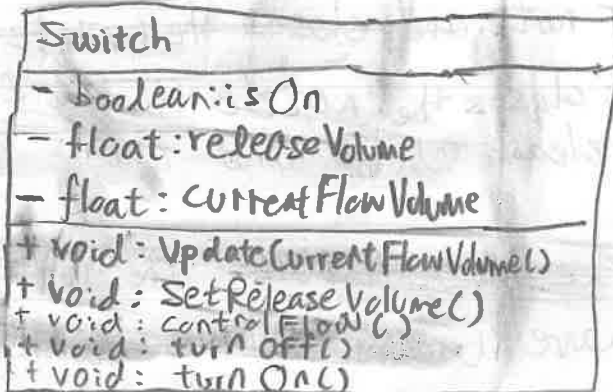 Switch
- boolean:isOn
- float:releaseVolume
- float: currentFlowVolume
+ void: UpdateCurrentFlowVolume()
+ void: SetReleaseVolume()
+ void: controlFlow()
+ void: turnOff()
+ void: turnOn()